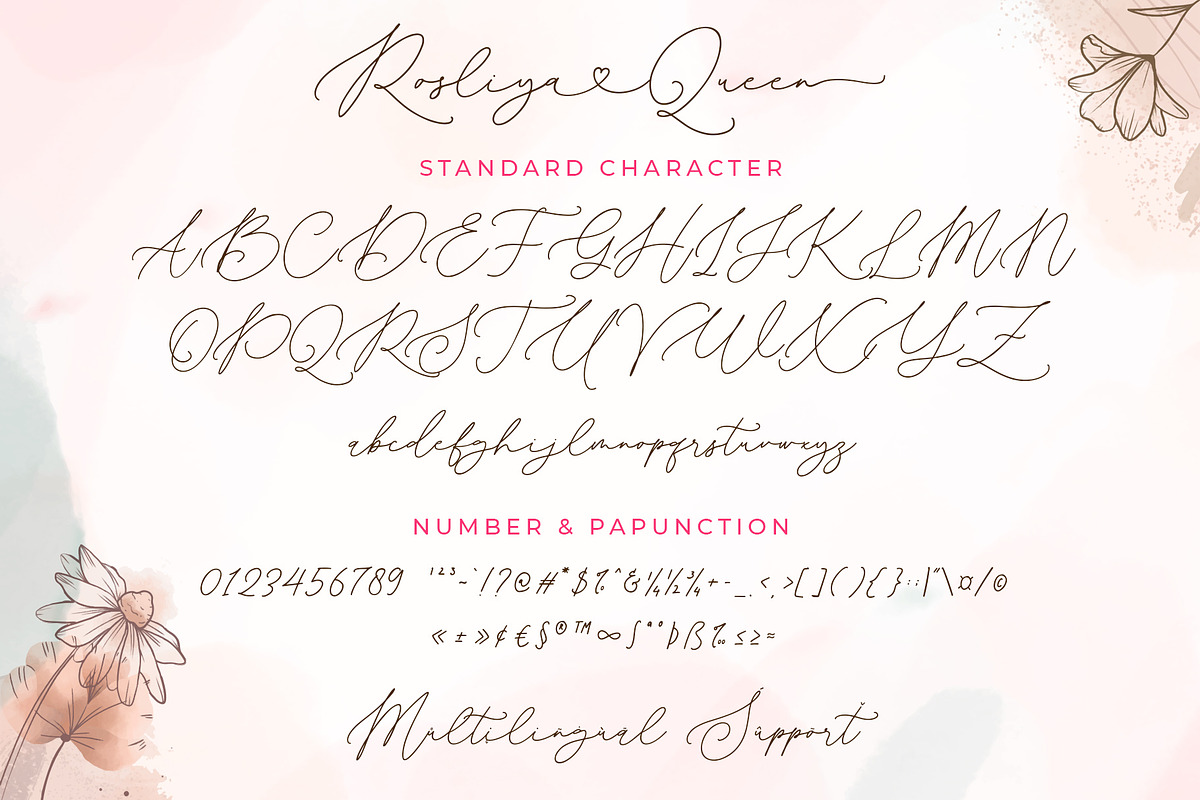 Rosliya Queen
STANDARD CHARACTER
ABCDEFGHIJKLMN
OPQRSTUVWXYZ
abcdefghijklmnopqrstuvwxyz
NUMBER & PAPUNCTION
0123456789 ¹²³~`!?@#*$%^&¼½¾+-_.<,>[](){}:;|"\¤/©
«±»¢€§®™∞∫ªºÞß‰≤≥≈
Multilingual Support